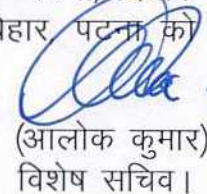 बिहार, पटना को
(आलोक कुमार)
विशेष सचिव।